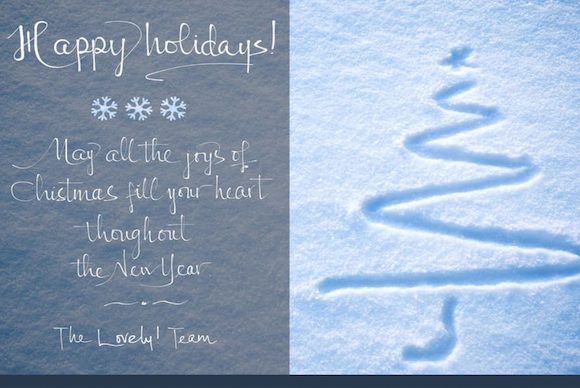 Happy holidays!
May all the joys of
Chistmas fill your heart
thoughout
the New Year
The Lovely! Team